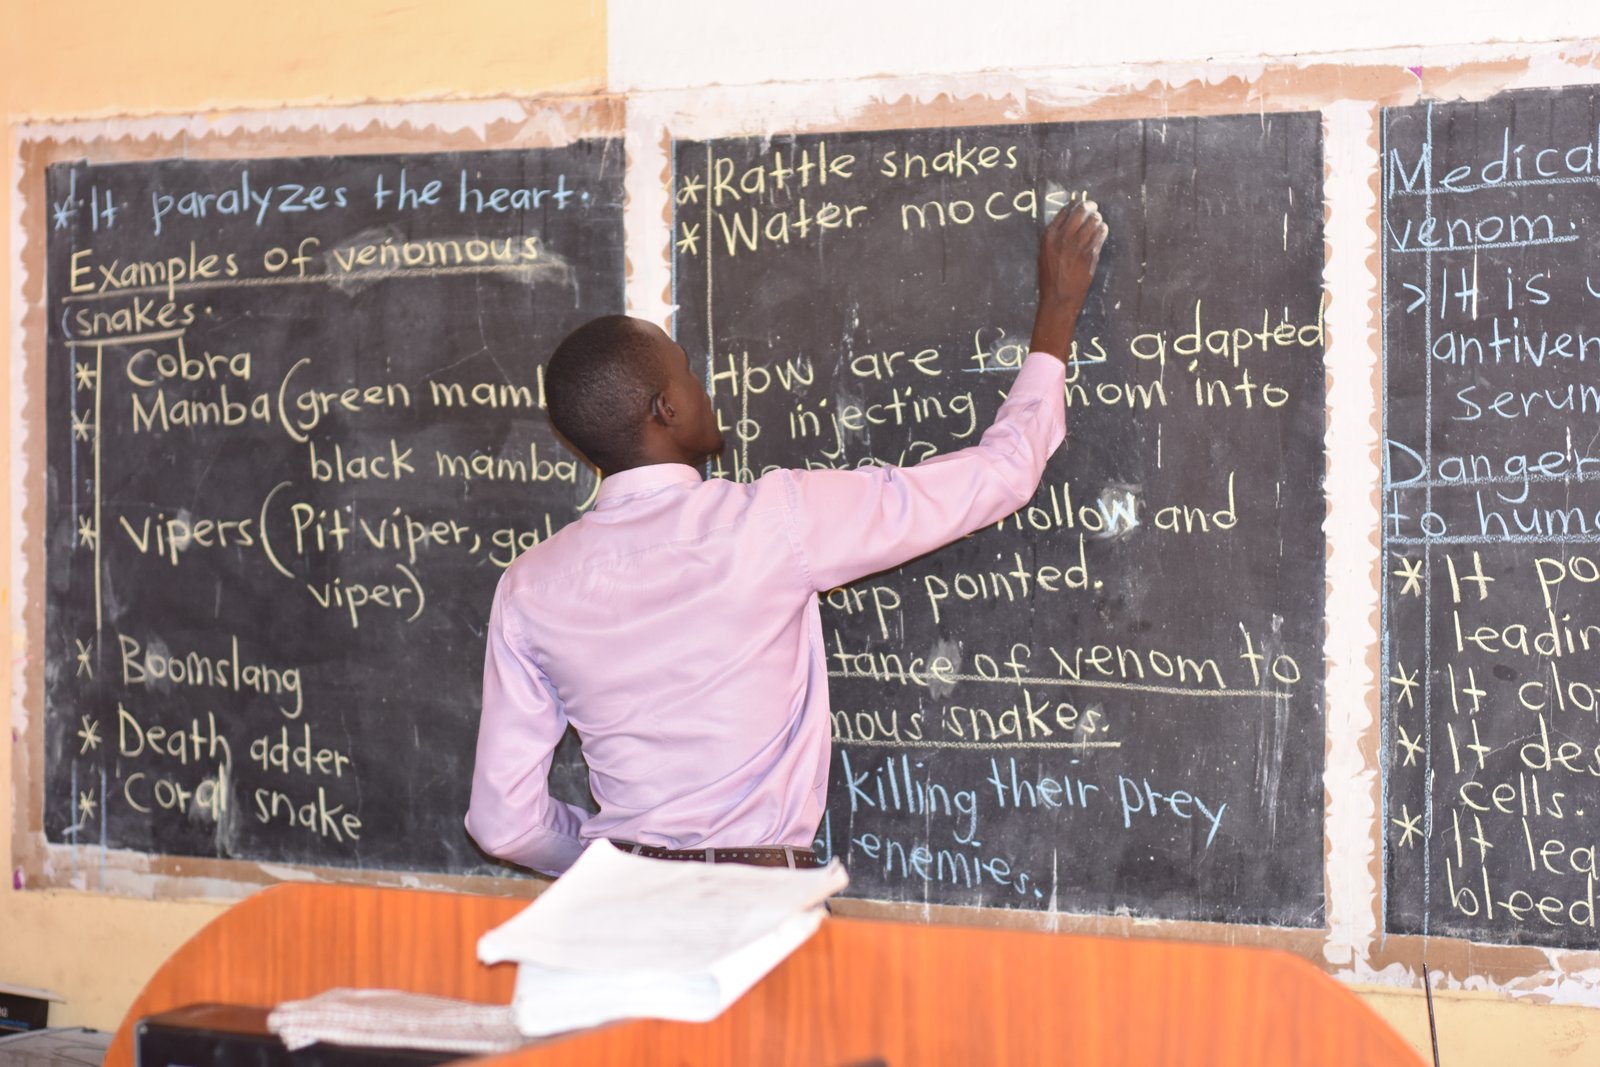 * It paralyzes the heart.
Examples of venomous
snakes.
* Cobra
* Mamba (green
black mamba)
* Vipers (Pit viper,
viper)
* Boomslang
* Death adder
* Coral snake
* Rattle snakes
* Water
How are fangs adapted
to injecting venom into
the prey?
hollow and
pointed.
of venom to
snakes.
killing their prey
enemies.
Medical
venom.
>It is
serum
Danger
to
* It
* It
* It
cells.
* It